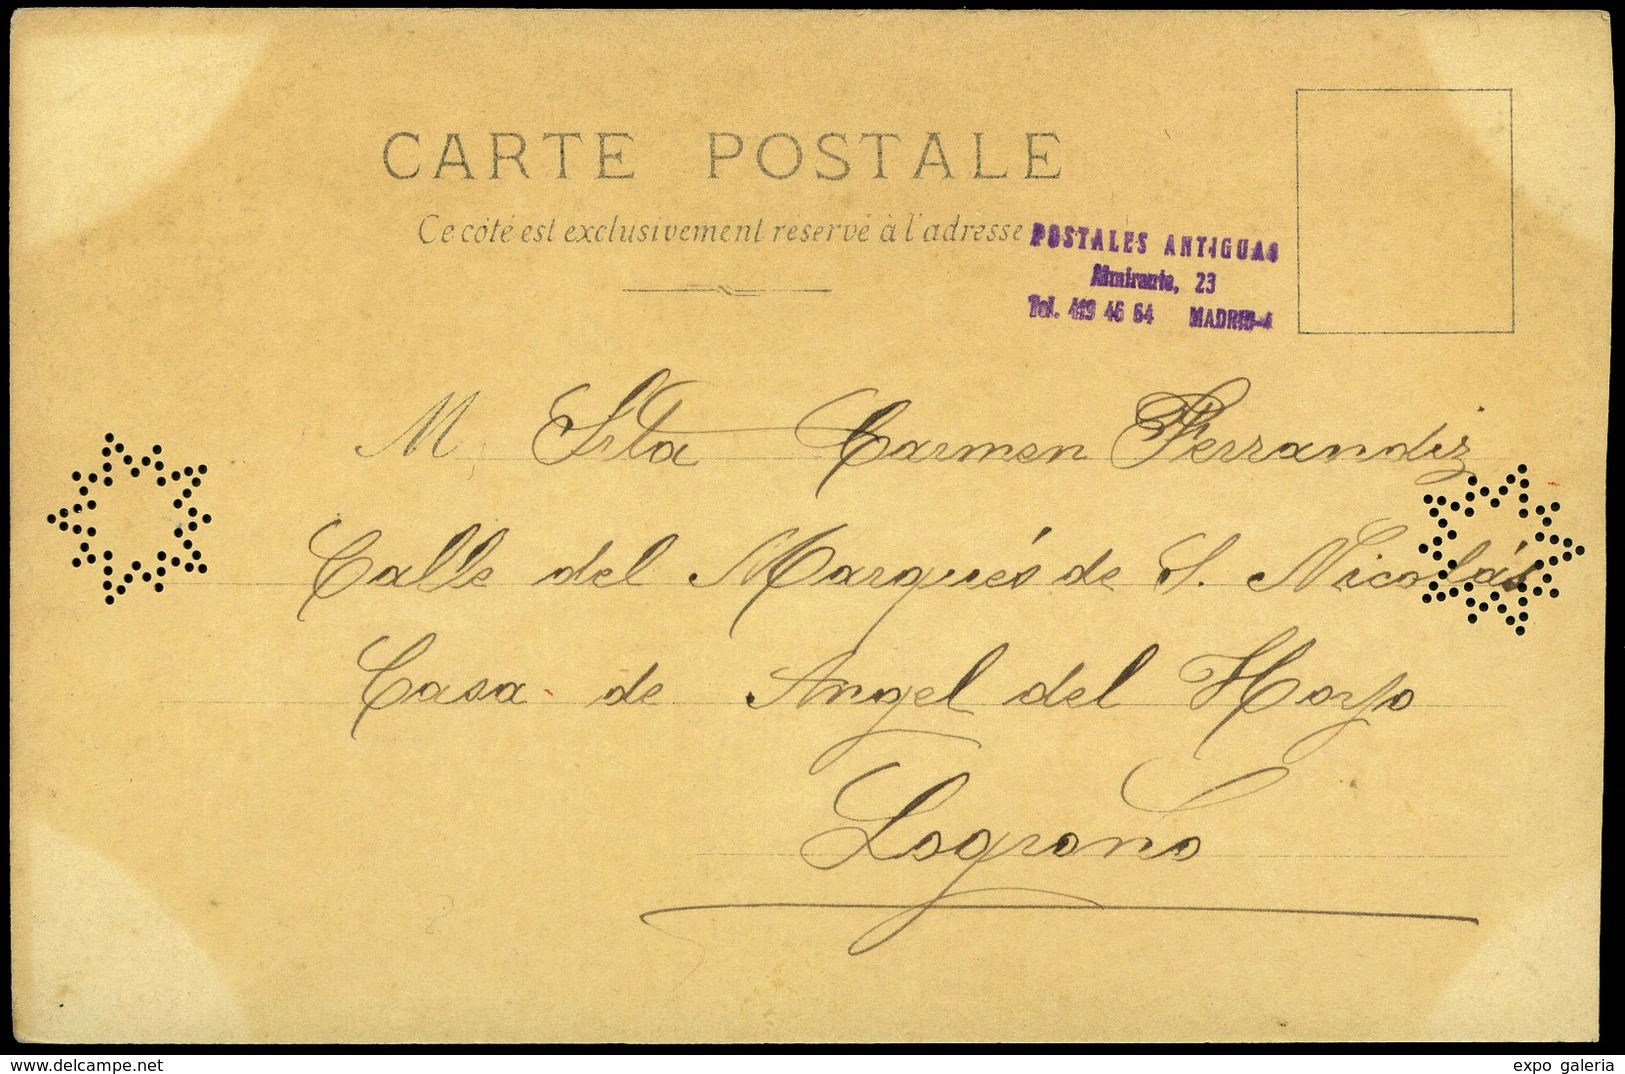 CARTE POSTALE
Ce côté est exclusivement réservé à l'adresse
POSTALES ANTIGUAS
Almirante, 23
Tel. 419 46 64 MADRID-4
M Srta Carmen Ferrandiz
Calle del Marqués de S. Nicolás
Casa de Angel del Hoyo
Logrono
www.delcampe.net
expo galeria